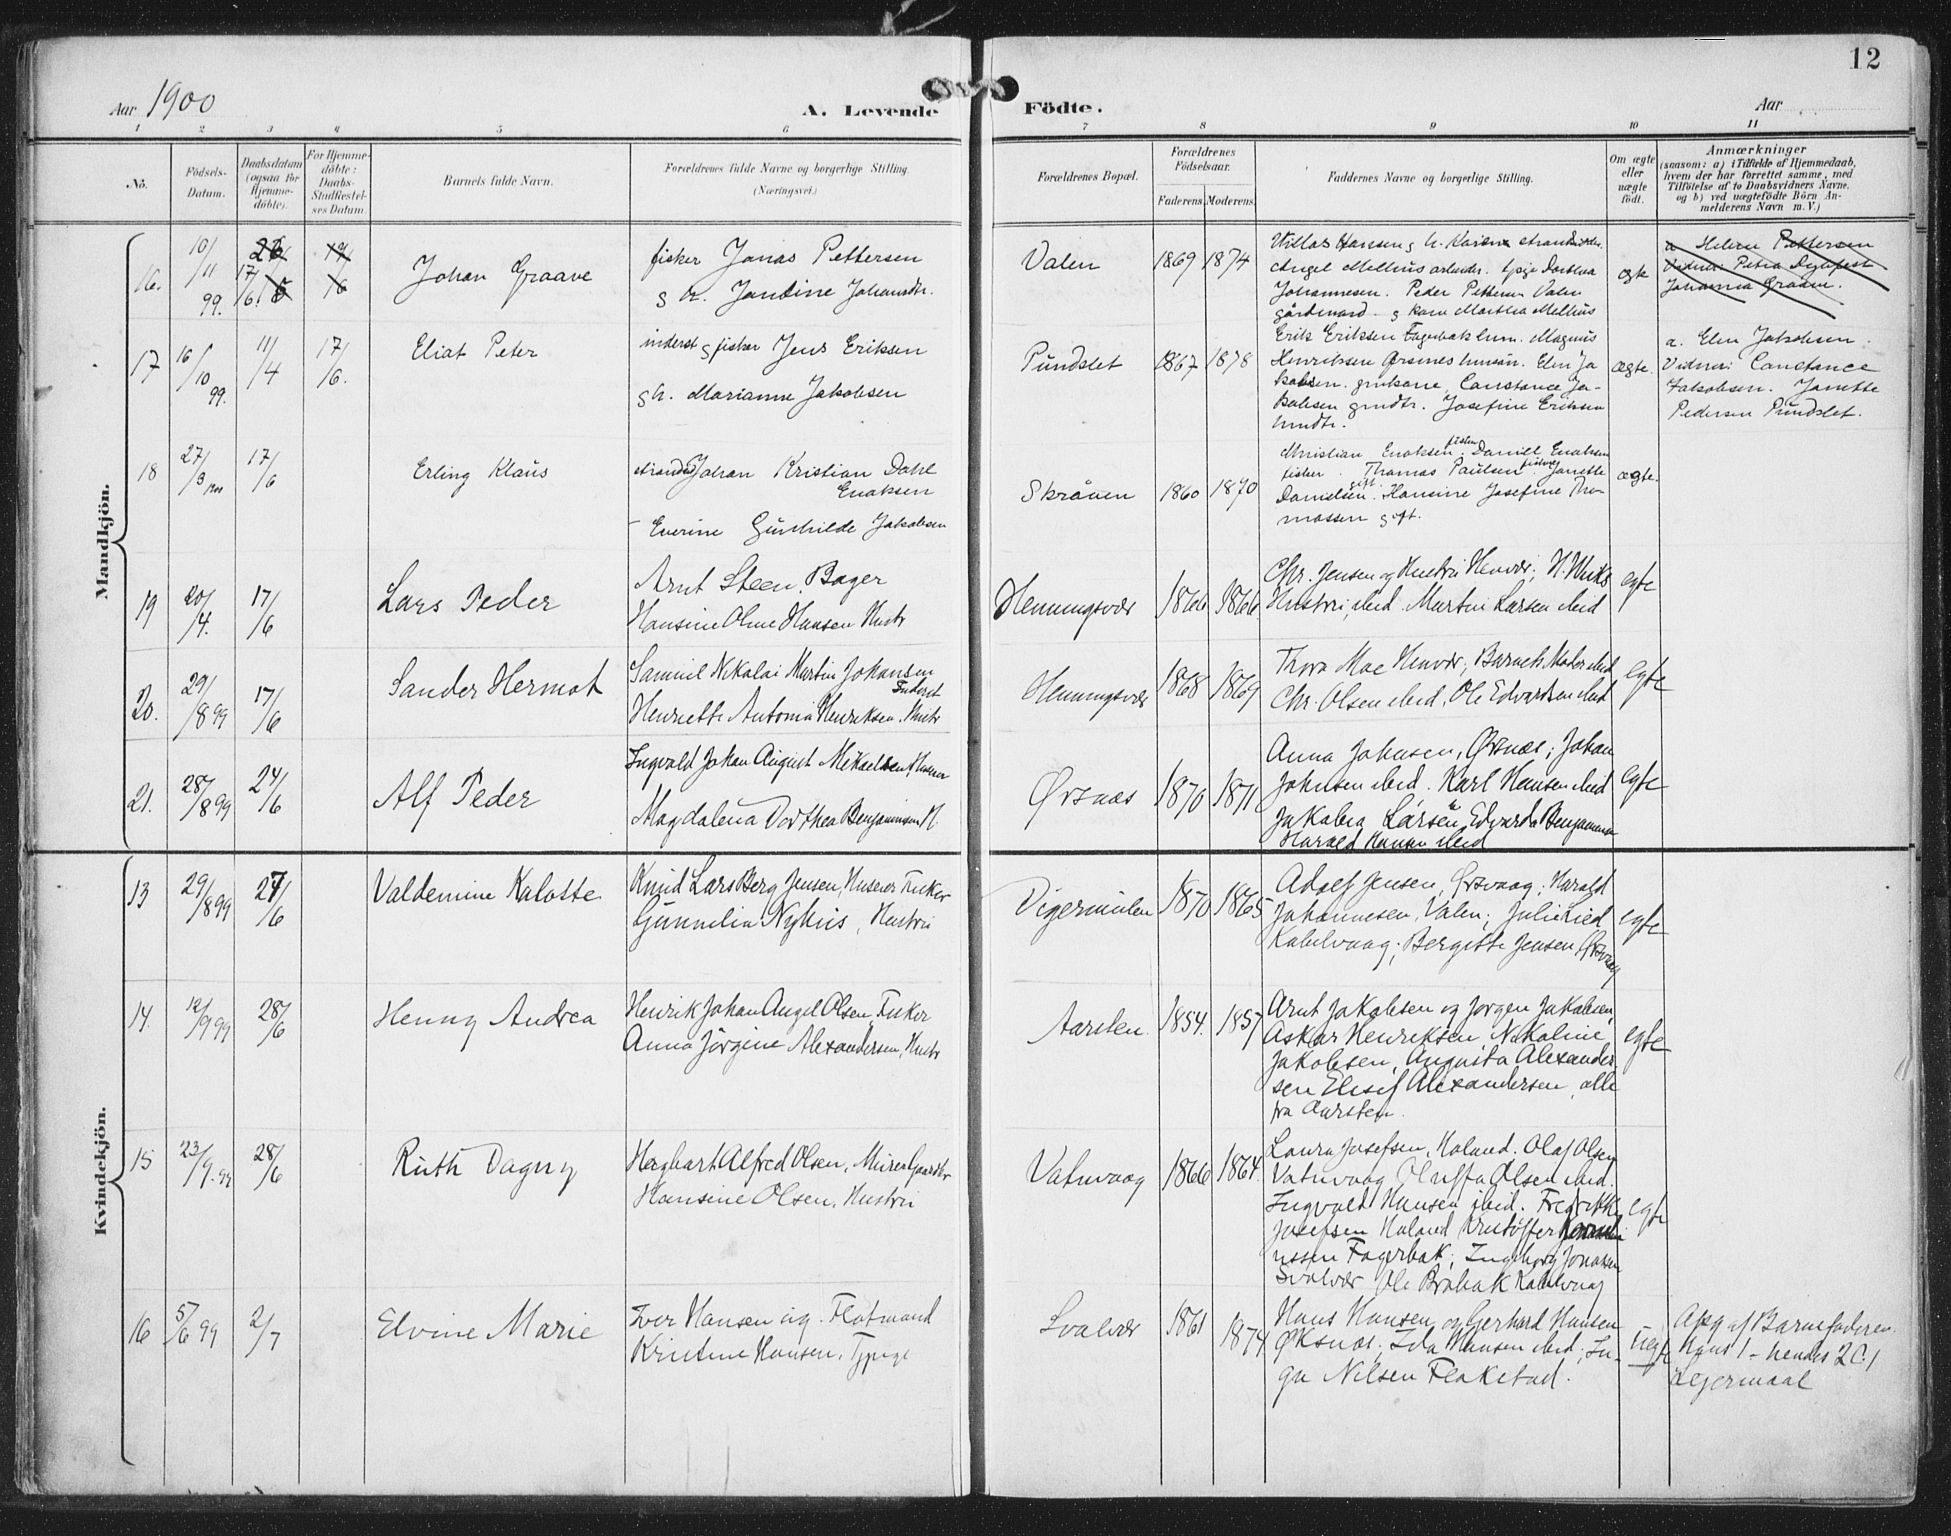 12
Aar 1900
A. Levende
Födte.
Aar
1 2 3 4 5 6
7 8 9 10 11
No.
Födsels-
Datum.
Daabsdatum
(ogsaa for
Hjemme-
döbte).
For Hjemme-
döbte:
Daabs-
Stadfæstel-
ses Datum
Barnets fulde Navn.
Forældrenes fulde Navne og borgerlige Stilling.
(Næringsvei.)
Forældrenes Bopæl.
Forældrenes
Födselsaar.
Faderens Moderens
Faddernes Navne og borgerlige Stilling.
Om ægte
eller
uægte
födt.
Anmærkninger
(saasom: a) i Tilfælde af Hjemmedaab,
hvem der har forrettet samme, med
Tilföielse af to Daabsvidners Navne,
og b) ved uægtefödte Börn An-
melderens Navn m. V.)
Mandkjön.
16. 10/11 99. 17/6. Johan Graave
fisker Jonas Pettersen
g h. Jandine Johansdtr.
Valen 1869 1874
Johannesen. Peder Pettersen Valen
ægte
a Helene Pettersen
Johanna Graave.
17 16/10 99. 11/4 17/6. Eliat Peter
inderst g fisker Jens Eriksen
g h. Marianne Jakobsen
Pundslet 1867 1878
Erik Eriksen Fagerbak Magnus
Henriksen Ørsnes Elen Ja
kobsen. Constance Ja-
kobsen Josefine Eriksen
ægte.
a. Elen Jakobsen.
Vidner: Constance
Jakobsen. Janette
Pedersen Pundslet.
18 27/3 17/6 Erling Klaus
Johan Kristian Dahl
Enoksen
Everine Gunhilde Jakobsen
Skråven 1860 1870
Kristian Enoksen fisker Daniel Enoksen
fisker. Thomas Paulsen fisker Janette
Danielsen gift. Hansine Josefine Tho-
massen gift.
ægte.
19 20/4. 17/6 Lars Peder
Arnt Steen. Bager
Hansine Oline Hansen Hustr
Henningsvær 1866 1866
Chr. Jensen og Hustru Henvær;
Hustru, ibid. Martin Larsen ibid
egte
20. 29/8 99 17/6 Sander Hermot
Samuel Nikolai Martin Johansen
Inderst
Henriette Antoma Henriksen, Hustr
Henningsvær 1868 1869
Thora Moe Henvær; Barnets Moder ibid
Chr. Olsen ibid. Ole Edvardsen ibid
egte
21. 28/8 99 24/6 Alf Peder
Ingvald Johan August Mikaelsen,
Magdalena Dorthea Benjaminsen H.
Ørsnæs 1870 1871
Anna Johnsen, Ørsnæs; Johan
Johnsen ibid. Karl Hansen ibid
Jakobia Larsen, Edvarda Benjaminsen
Harald Hansen ibid
egte
Kvindekjön.
13 29/8 99 24/6 Valdemine Kalotte
Knud Lars Berg Jensen, Husener Fisker
Gunnelia Nyhus, Hustru
Digermulen 1870 1865
Adolf Jensen, Ørsvaag. Harald
Johannesen, Valen; Julie Lied
Kabelvaag; Bergitte Jensen Ørsvaag
egte
14. 12/9 99 28/6 Henny Andrea
Henrik Johan Angel Olsen, Fisker
Anna Jörgine Alexandersen, Hustr
Aarsten 1854. 1857
Arnt Jakobsen og Jørgen Jakobsen,
Askar Henriksen, Nikoline
Jakobsen, Augusta Alexander
sen Elisef Alexandersen, alle
fra Aarsten.
egte
15 23/9. 99 28/6 Ruth Dagny
Hegbart Alfred Olsen, Murer Gaardbr
Hansine Olsen, Hustru
Vatnvaag 1866 1864.
Laura Josefsen, Holand. Olaf Olsen
Vatnvaag Oluffa Olsen ibid.
Ingvald Hansen ibid. Fredrikke
Josefsen Holand Kristoffer
Fagerbak; Ingeborg Jonassen
Svolvær Ole Brobak Kabelvaag
egte
16 5/6 99 2/7 Elvine Marie
Iver Hansen ug. Flotmand
Kristine Hansen, Tjpige
Svolvær 1861 1874
Hans Hansen og Gerhard Hansen
Øksnæs; Ida Hansen ibid; In-
ga Nilsen Flakstad.
uegte
Opg af Barnefaderen
hans 1 - hendes 2
Lejermaal